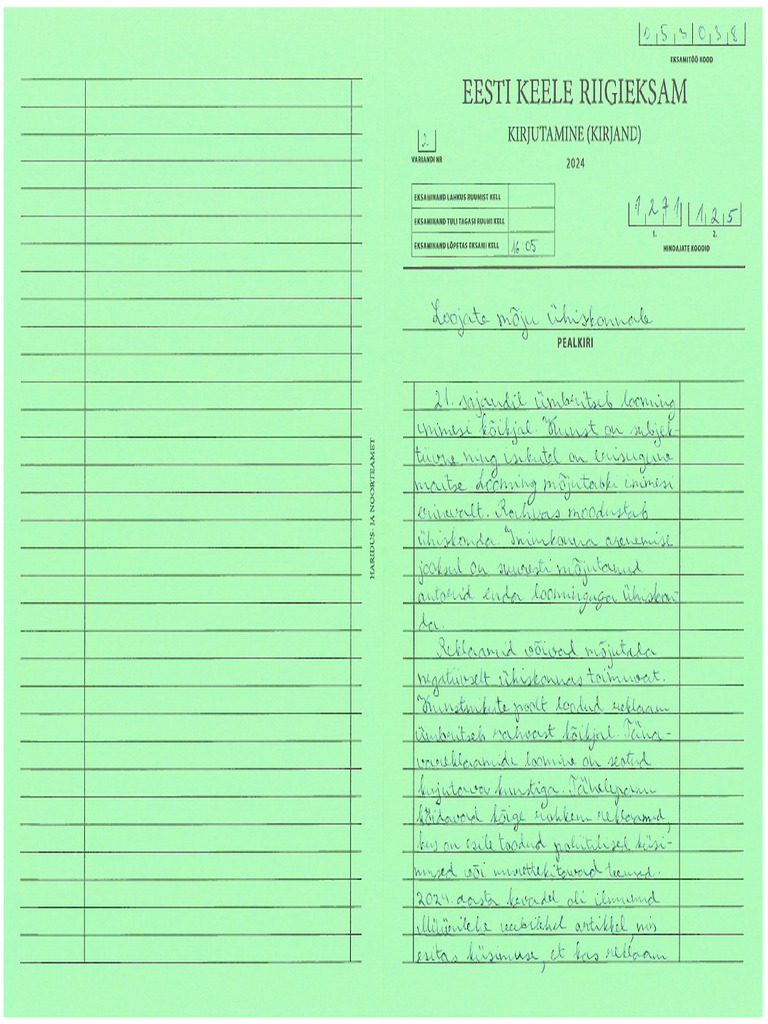 053038
EKSAMITÖÖ KOOD
EESTI KEELE RIIGIEKSAM
KIRJUTAMINE (KIRJAND)
2.
VARIANDI NR
2024
EKSAMINAND LAHKUS RUUMIST KELL
EKSAMINAND TULI TAGASI RUUMI KELL
EKSAMINAND LÕPETAS EKSAMI KELL 16 05
1271 125
1. 2.
HINDAJATE KOODID
Loojate mõju ühiskonnale
PEALKIRI
HARIDUS- JA NOORTEAMET
21. sajandil ümbritseb looming
inimesi kõikjal. Kunst on subjek-
tiivne ning isikutel on erisugune
maitse. Looming mõjutabki inimesi
erinevalt. Rahvas moodustab
ühiskonda. Inimkonna arenemise
jooksul on suuresti mõjutanud
autorid enda loominguga ühiskon-
da.
Reklaamid võivad mõjutada
negatiivselt ühiskonnas toimuvat.
Kunstnikute poolt loodud reklaam
ümbritseb rahvast kõikjal. Täna-
vareklaamide loomine on seotud
kujutava kunstiga. Tähelepanu
köidavad kõige rohkem reklaamid,
kus on esile toodud poliitilised küsi-
mused või murettekitavad teemad.
2024. aasta kevadel oli ilmunud
veebilehel artikkel, mis
esitas küsimuse, et kas reklaam